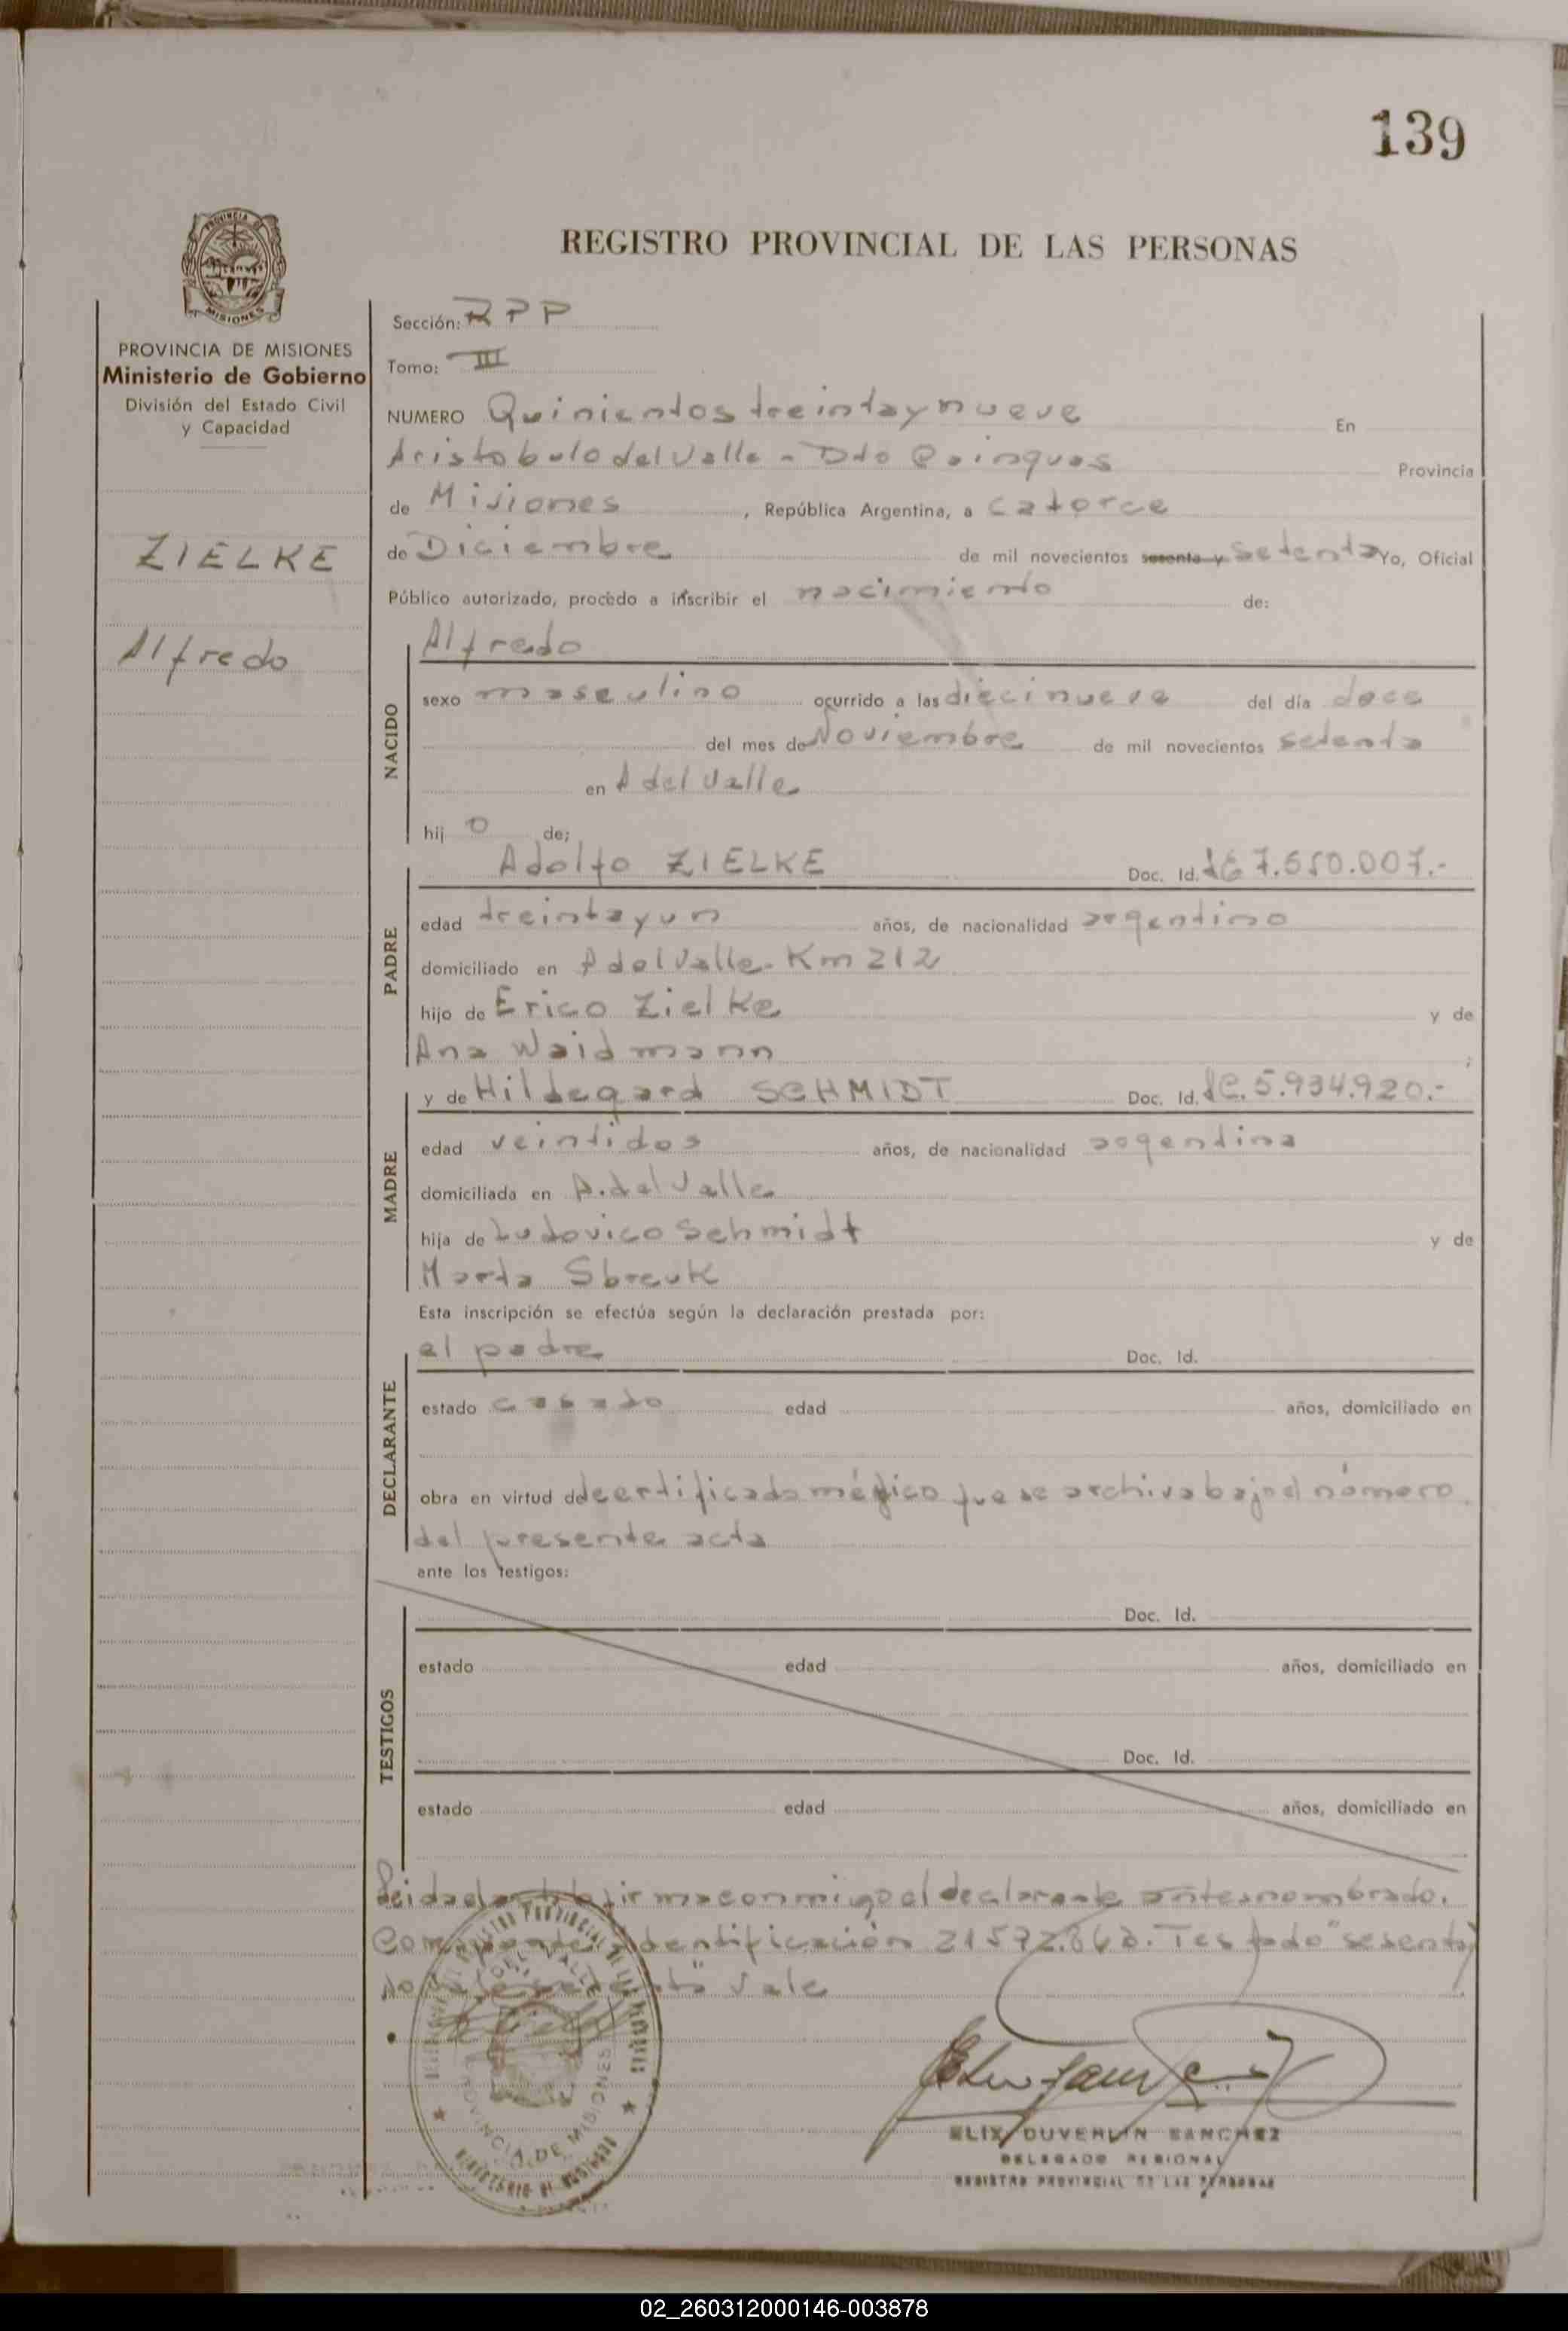 139
PROVINCIA DE
MISIONES
REGISTRO PROVINCIAL DE LAS PERSONAS
PROVINCIA DE MISIONES
Ministerio de Gobierno
División del Estado Civil
y Capacidad
ZIELKE
Alfredo
Sección: RPP
Tomo: III
NUMERO Quinientos treinta y nueve En
Aristobulo del Valle - Dto Cainguas Provincia
de Misiones, República Argentina, a catorce
de Diciembre de mil novecientos sesenta y setenta Yo, Oficial
Público autorizado, procedo a inscribir el nacimiento de:
NACIDO
Alfredo
sexo masculino ocurrido a las diecinueve del día doce
del mes de Noviembre de mil novecientos setenta
en A del Valle
hij o de;
PADRE
Adolfo ZIELKE Doc. Id. 7.550.007.-
edad treinta y un años, de nacionalidad argentino
domiciliado en A del Valle - Km 212
hijo de Erico Zielke y de
Ana Waidmann ;
MADRE
y de Hildegard SCHMIDT Doc. Id. LC. 5.934.920.-
edad veintidos años, de nacionalidad argentina
domiciliada en A. del Valle
hija de Ludovico Schmidt y de
Marta Sbreuk
Esta inscripción se efectúa según la declaración prestada por:
DECLARANTE
el padre Doc. Id.
estado casado edad años, domiciliado en
obra en virtud de certificado médico que se archiva bajo el número
del presente acta
ante los testigos:
TESTIGOS
Doc. Id.
estado edad años, domiciliado en
Doc. Id.
estado edad años, domiciliado en
Leida el acta firma conmigo el declarante antes nombrado.
Corresponde identificación Testado "sesenta y
no vale Vale
PROVINCIA DE MISIONES
ELIX DUVERLIN SANCHEZ
DELEGADO REGIONAL
REGISTRO PROVINCIAL DE LAS PERSONAS
02_260312000146-003878